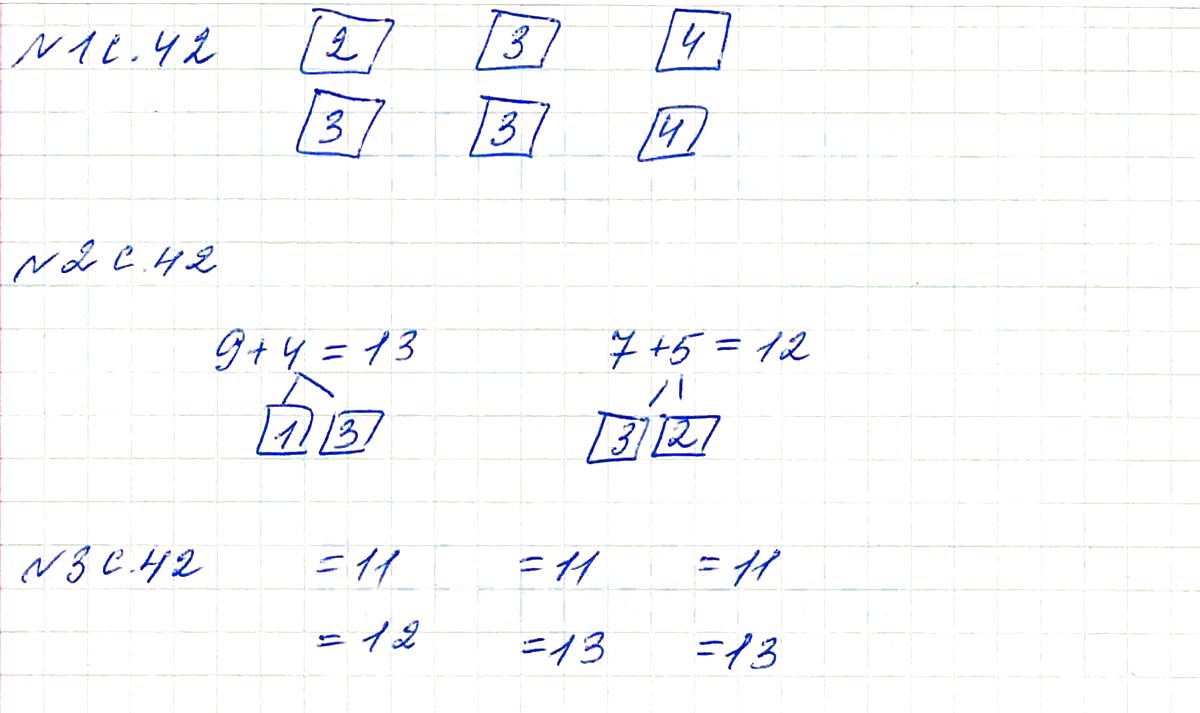 №1 с.42 2 3 4
3 3 4
№2 с.42
9+4=13 7+5=12
1 3 3 2
№3 с.42 =11 =11 =11
=12 =13 =13